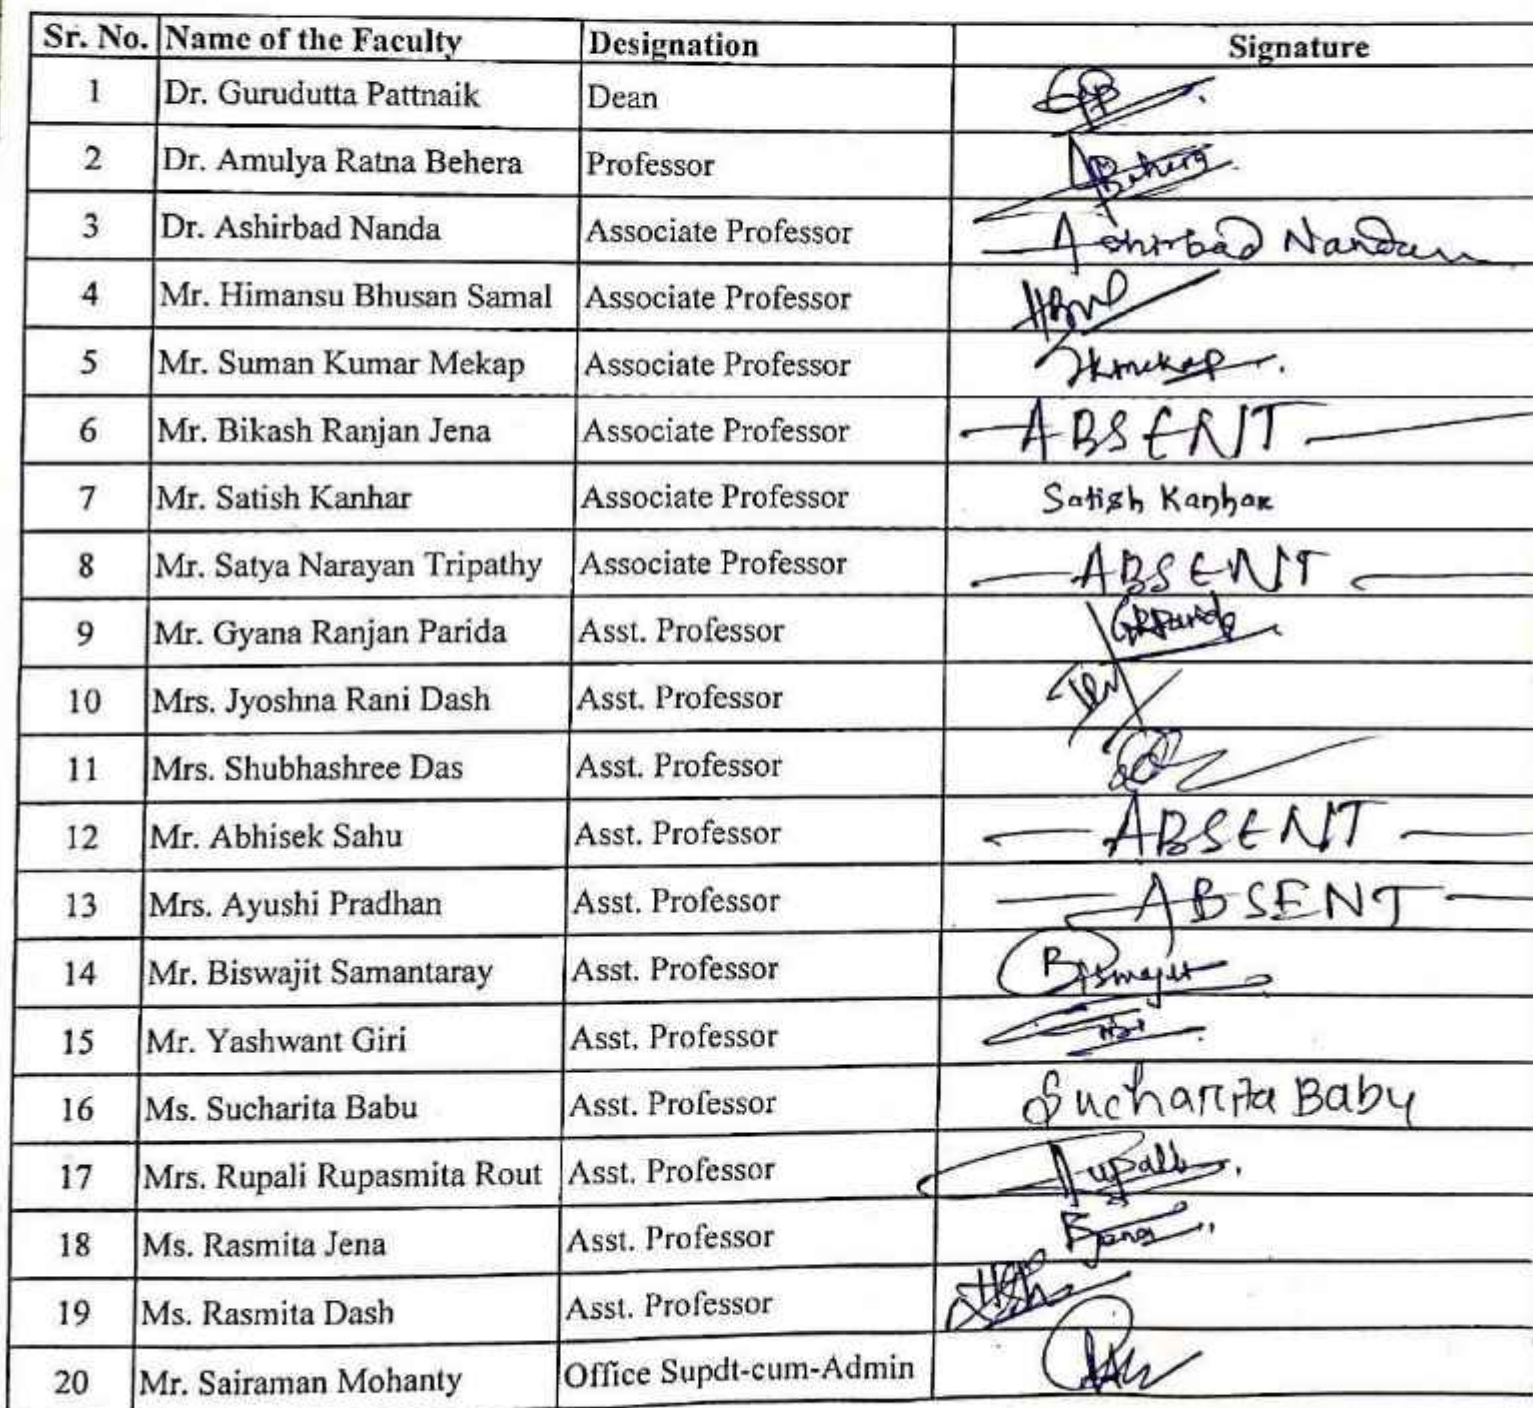 Sr. No. Name of the Faculty Designation Signature
1 Dr. Gurudutta Pattnaik Dean
2 Dr. Amulya Ratna Behera Professor ABehera
3 Dr. Ashirbad Nanda Associate Professor Ashirbad Nanda
4 Mr. Himansu Bhusan Samal Associate Professor
5 Mr. Suman Kumar Mekap Associate Professor Skmekap.
6 Mr. Bikash Ranjan Jena Associate Professor ABSENT
7 Mr. Satish Kanhar Associate Professor Satish Kanhar
8 Mr. Satya Narayan Tripathy Associate Professor ABSENT
9 Mr. Gyana Ranjan Parida Asst. Professor GRParida
10 Mrs. Jyoshna Rani Dash Asst. Professor
11 Mrs. Shubhashree Das Asst. Professor
12 Mr. Abhisek Sahu Asst. Professor ABSENT
13 Mrs. Ayushi Pradhan Asst. Professor ABSENT
14 Mr. Biswajit Samantaray Asst. Professor Biswajit
15 Mr. Yashwant Giri Asst. Professor
16 Ms. Sucharita Babu Asst. Professor Sucharita Babu
17 Mrs. Rupali Rupasmita Rout Asst. Professor Rupali
18 Ms. Rasmita Jena Asst. Professor RJena
19 Ms. Rasmita Dash Asst. Professor
20 Mr. Sairaman Mohanty Office Supdt-cum-Admin